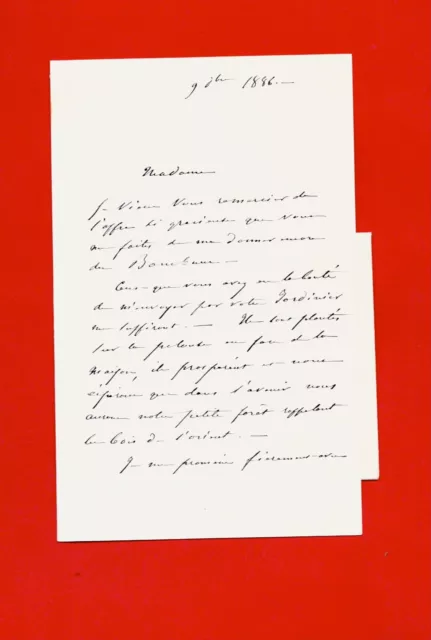 9 9bre 1886. —
Madame
Je viens vous remercier de
l'offre si gracieuse que vous
me faites de me donner encore
des Bambous —
Ceux que vous avez eu la bonté
de m'envoyer par votre Jardinier
me suffiront. — Ils sont plantés
sur la pelouse en face de la
maison, ils prospèrent et nous
espérons que dans l'avenir nous
aurons notre petite forêt rappelant
les bois de l'orient. —
Je me promène fièrement